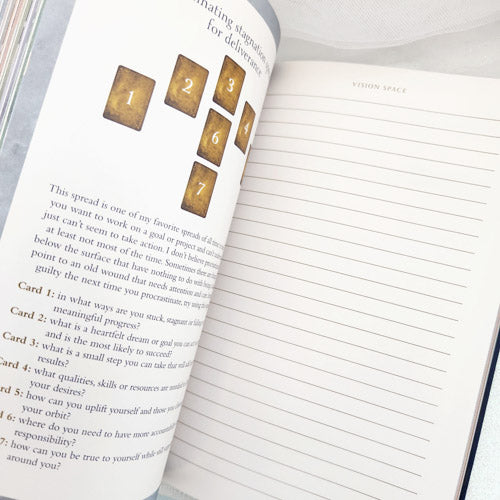 stagnation
for deliverance
1
2
3
4
6
7
This spread is one of my favorite spreads of all time
you want to work on a goal or project and can't
just can't seem to take action. I don't believe
at least not most of the time. Sometimes there are
below the surface that have nothing to do with
point to an old wound that needs attention and
guilty the next time you procrastinate, try using
Card 1: in what ways are you stuck, stagnant or
meaningful progress?
Card 2: what is a heartfelt dream or goal you
and is the most likely to succeed?
Card 3: what is a small step you can take that will
results?
Card 4: what qualities, skills or resources are needed
your desires?
5: how can you uplift yourself and those
your orbit?
6: where do you need to have more
responsibility?
7: how can you be true to yourself while still
around you?
VISION SPACE